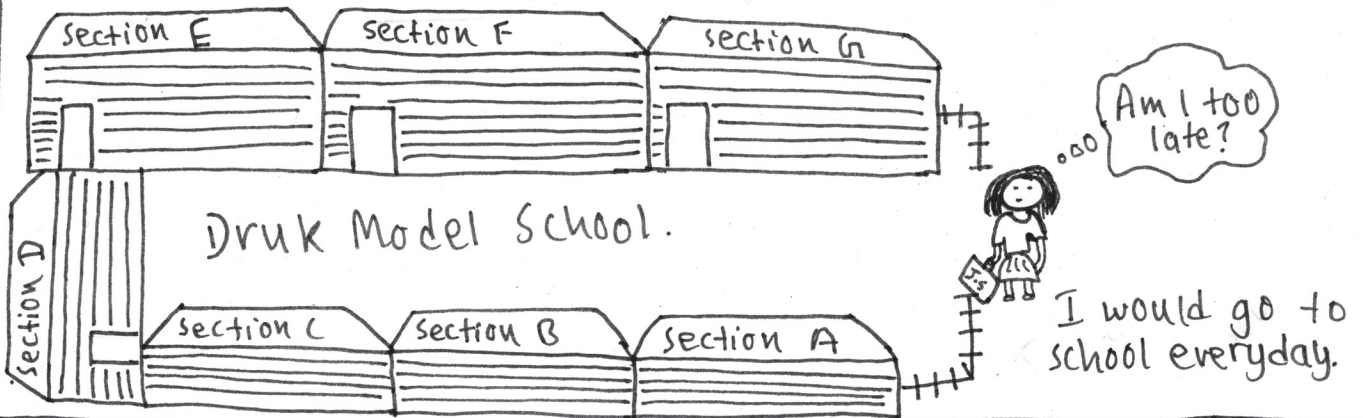 section E
section F
section G
Am I too
late?
section D
Druk Model School.
J.S
section C
section B
section A
I would go to
school everyday.